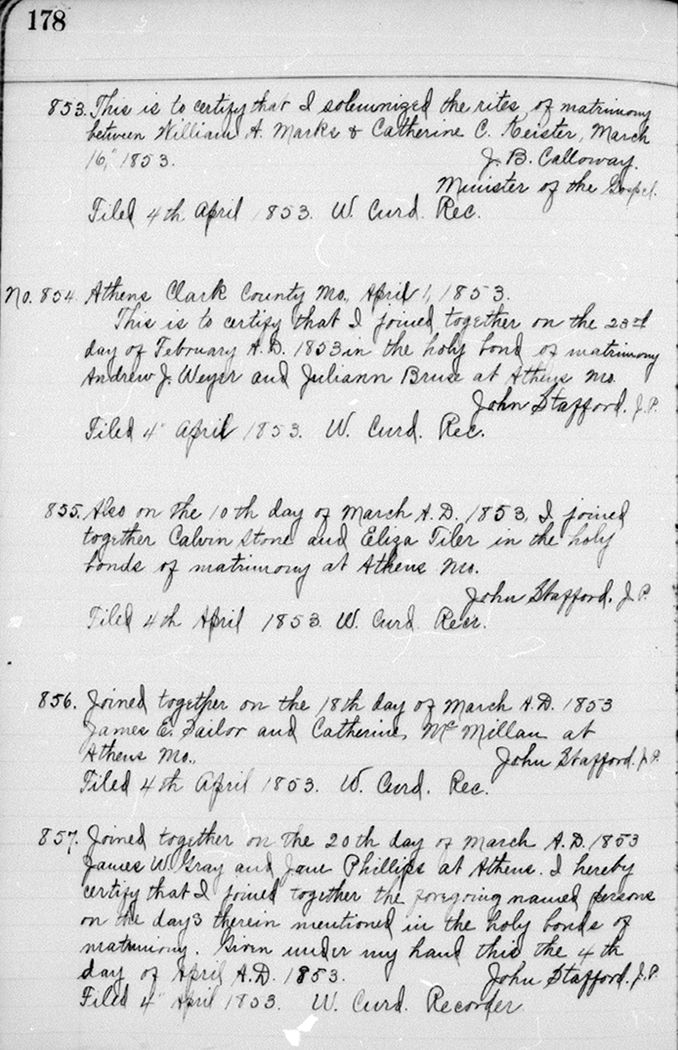 178
853. This is to certify that I solemnized the rites of matrimony
between William A. Marks & Catherine C. Keister, March
16," 1853. J. B. Calloway.
Minister of the Gospel.
Filed 4th April 1853. W. Curd. Rec.
No. 854. Athens Clark County Mo., April 1, 1853.
This is to certify that I joined together on the 23rd
day of February A.D. 1853 in the holy bond of matrimony
Andrew J. Weyer and Juliann Bruse at Athens Mo.
John Stafford. J.P.
Filed 4" April 1853. W. Curd. Rec.
855. Also on the 10th day of March A.D. 1853, I joined
together Calvin Stone and Eliza Tiler in the holy
bonds of matrimony at Athens Mo.
John Stafford. J.P.
Filed 4th April 1853. W. Curd. Recr.
856. Joined together on the 18th day of March A.D. 1853
James E. Sailor and Catherine Mc Millan at
Athens Mo., John Stafford. J.P.
Filed 4th April 1853. W. Curd. Rec.
857. Joined together on the 20th day of March A.D. 1853
James W. Gray and Jane Phillips at Athens. I hereby
certify that I joined together the foregoing named persons
on the days therein mentioned in the holy bonds of
matrimony. Given under my hand this the 4th
day of April A.D. 1853. John Stafford. J.P.
Filed 4" April 1853. W. Curd. Recorder